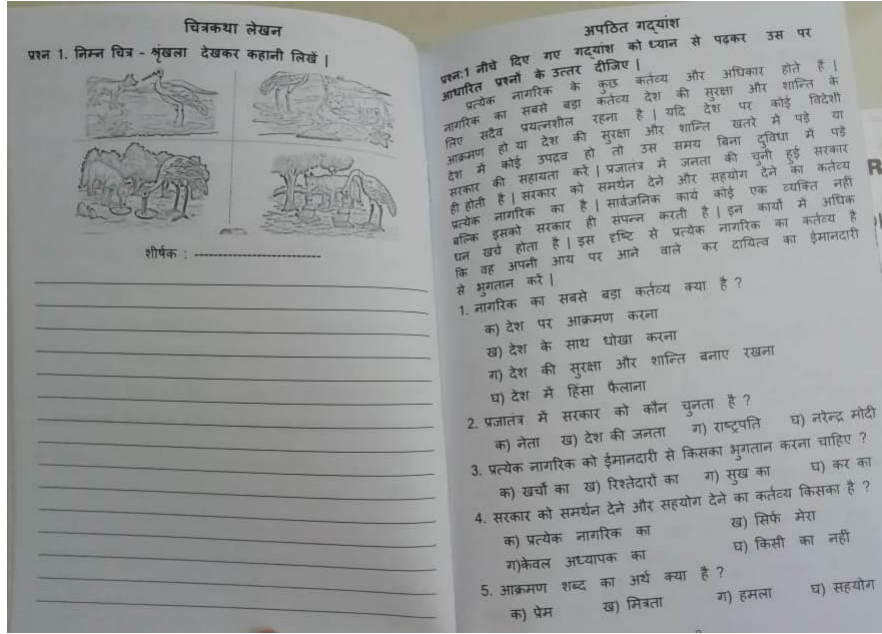 चित्रकथा लेखन
प्रश्न 1. निम्न चित्र - श्रृंखला देखकर कहानी लिखें |
शीर्षक : ----------------------------
अपठित गद्यांश
प्रश्न:1 नीचे दिए गए गद्यांश को ध्यान से पढ़कर उस पर
आधारित प्रश्नों के उत्तर दीजिए |
प्रत्येक नागरिक के कुछ कर्तव्य और अधिकार होते हैं |
नागरिक का सबसे बड़ा कर्तव्य देश की सुरक्षा और शान्ति के
लिए सदैव प्रयत्नशील रहना है | यदि देश पर कोई विदेशी
आक्रमण हो या देश की सुरक्षा और शान्ति खतरे में पड़े या
देश में कोई उपद्रव हो तो उस समय बिना दुविधा में पड़े
सरकार की सहायता करें | प्रजातंत्र में जनता की चुनी हुई सरकार
ही होती है | सरकार को समर्थन देने और सहयोग देने का कर्तव्य
प्रत्येक नागरिक का है | सार्वजनिक कार्य कोई एक व्यक्ति नहीं
बल्कि इसको सरकार ही संपन्न करती है | इन कार्यों में अधिक
धन खर्च होता है | इस दृष्टि से प्रत्येक नागरिक का कर्तव्य है
कि वह अपनी आय पर आने वाले कर दायित्व का ईमानदारी
से भुगतान करें |
1. नागरिक का सबसे बड़ा कर्तव्य क्या है ?
क) देश पर आक्रमण करना
ख) देश के साथ धोखा करना
ग) देश की सुरक्षा और शान्ति बनाए रखना
घ) देश में हिंसा फैलाना
2. प्रजातंत्र में सरकार को कौन चुनता है ?
क) नेता ख) देश की जनता ग) राष्ट्रपति घ) नरेन्द्र मोदी
3. प्रत्येक नागरिक को ईमानदारी से किसका भुगतान करना चाहिए ?
क) खर्चों का ख) रिश्तेदारों का ग) सुख का घ) कर का
4. सरकार को समर्थन देने और सहयोग देने का कर्तव्य किसका है ?
क) प्रत्येक नागरिक का ख) सिर्फ मेरा
ग)केवल अध्यापक का घ) किसी का नहीं
5. आक्रमण शब्द का अर्थ क्या है ?
क) प्रेम ख) मित्रता ग) हमला घ) सहयोग
R